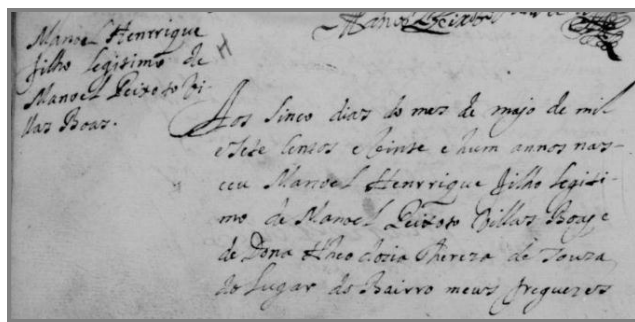 Manoel Peixoto
Manoel Henrrique
filho legitimo de
Manoel Peixoto Vi-
llas Boas.
Aos sinco dias do mes de majo de mil
e sete centos e vinte e hum annos nas-
ceu Manoel Henrrique filho legiti-
mo de Manoel Peixoto Villas Boas e
de Dona Theodozia Thereza de Souza
do Lugar do Bairro meus freguezes